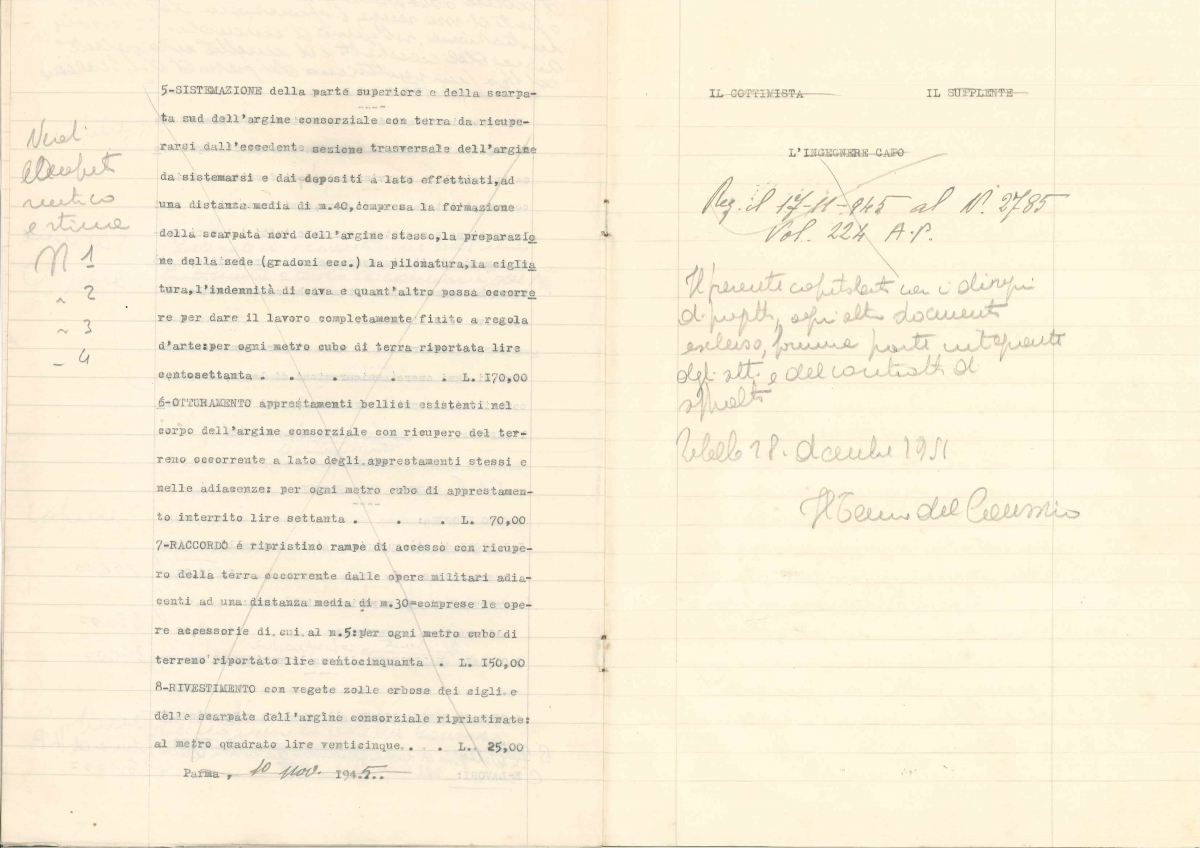 5-SISTEMAZIONE della parte superiore e della scarpa-
ta sud dell'argine consorziale con terra da ricupe-
rarsi dall'eccedente sezione trasversale dell'argine
da sistemarsi e dai depositi a lato effettuati,ad
una distanza media di m.40,compresa la formazione
della scarpata nord dell'argine stesso,la preparazio
ne della sede (gradoni ecc.) la pilonatura,la ciglia
tura,l'indennità di cava e quant'altro possa occorre
re per dare il lavoro completamente finito a regola
d'arte:per ogni metro cubo di terra riportata lire
centosettanta . . . . . . L. I70,00
6-OTTURAMENTO apprestamenti bellici esistenti nel
corpo dell'argine consorziale con ricupero del ter-
reno occorrente a lato degli apprestamenti stessi e
nelle adiacenze: per ogni metro cubo di apprestamen-
to interrito lire settanta . . . . L. 70,00
7-RACCORDO é ripristino rampe di accesso con ricupe-
ro della terra occorrente dalle opere militari adia-
centi ad una distanza media di m.30=comprese le ope-
re accessorie di cui al n.5:per ogni metro cubo di
terreno riportato lire centocinquanta . L. I50,00
8-RIVESTIMENTO con vegete zolle erbose dei cigli e
delle scarpate dell'argine consorziale ripristinate:
al metro quadrato lire venticinque. . . L. 25,00
Parma, 10 nov. 1945..
N 1
2
3
4
IL COTTIMISTA IL SUPPLENTE
L'INGEGNERE CAPO
Reg. il 17-11-945 al N. 2785
Vol. 224 A.P.
Il presente capitolato con i disegni
di progetto, ogni altro documento
escluso, forma parte integrante
degli atti e del contratto di
appalto
28 dicembre 1951